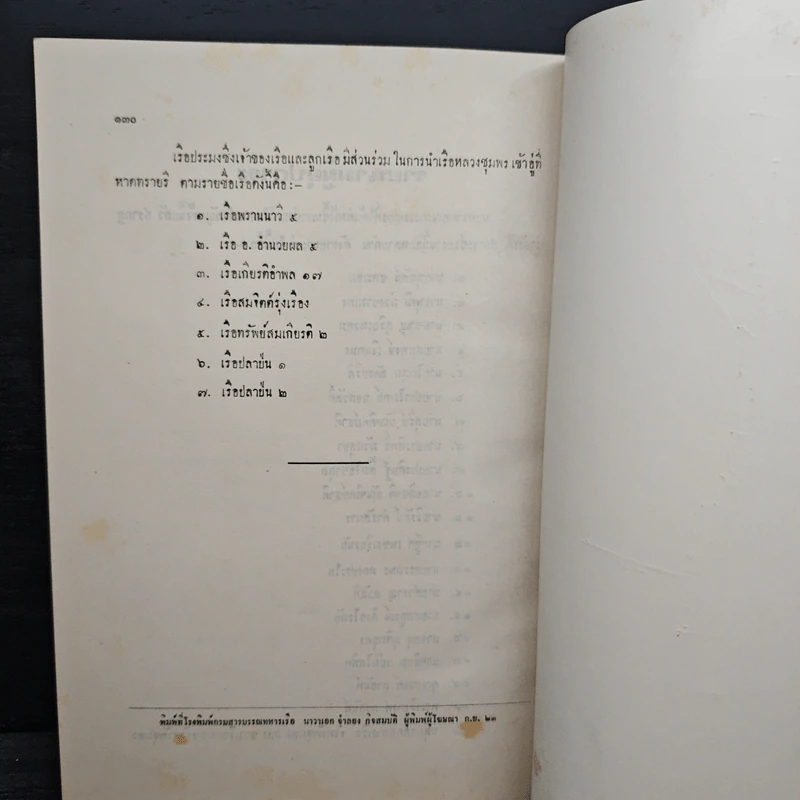 ๑๓๐
เรือประมงซึ่งเจ้าของเรือและลูกเรือ มีส่วนร่วม ในการนำเรือหลวงชุมพร เข้าอู่ที่
หาดทรายรี ตามรายชื่อเรือดังนี้คือ:–
๑. เรือพรานนาวี ๕
๒. เรือ อ. อำนวยผล ๕
๓. เรือเกียรติอำพล ๑๗
๔. เรือสมจิตต์รุ่งเรือง
๕. เรือทรัพย์สมเกียรติ ๒
๖. เรือปลายิ้น ๑
๗. เรือปลายิ้น ๒
พิมพ์ที่โรงพิมพ์กรมสารบรรณทหารเรือ นาวาเอก จำลอง กิจสมบัติ ผู้พิมพ์ผู้โฆษณา ก.ย. ๒๓